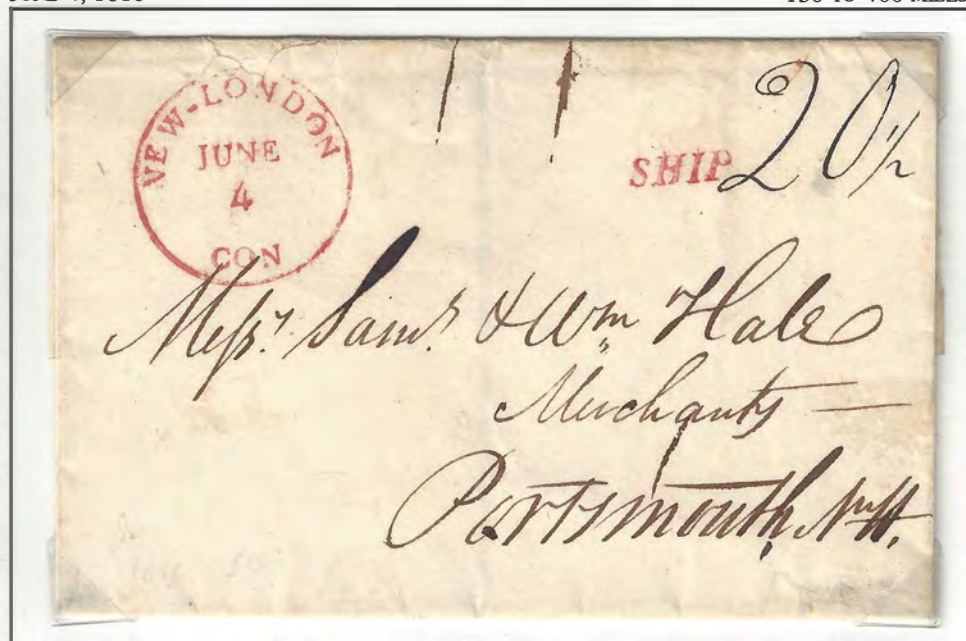 NEW-LONDON
JUNE
4
CON
SHIP
20 1/2
Messrs. Saml. & Wm. Hale
Merchants —
Portsmouth, N.H.